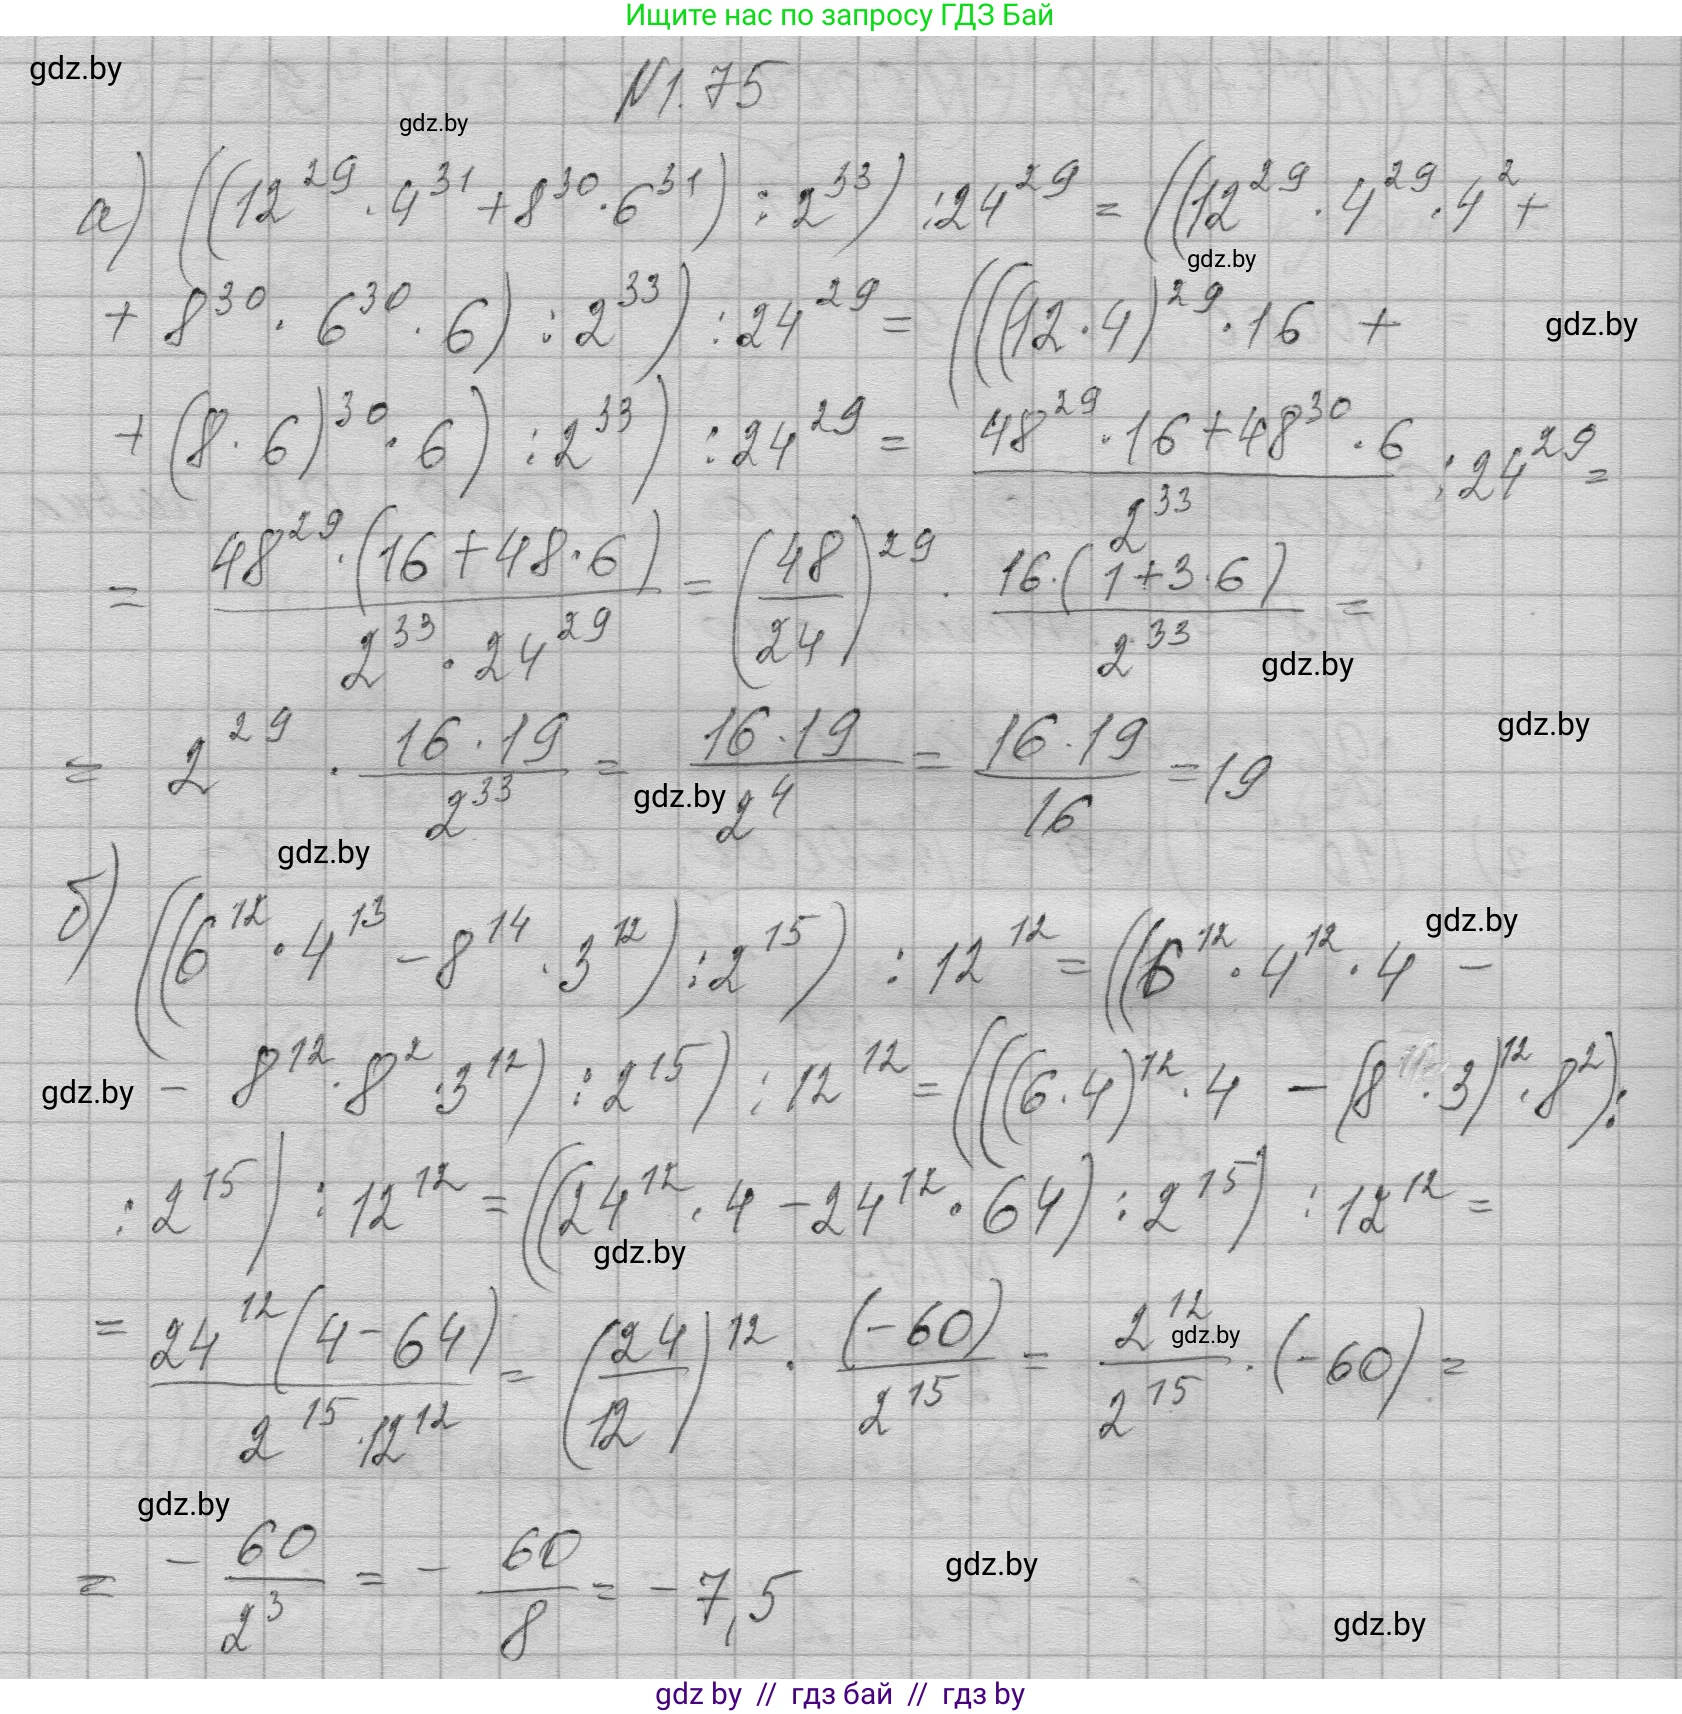 Ищите нас по запросу ГДЗ Бай
gdz.by
N1.75
gdz.by
а) ((12^29 · 4^31 + 8^30 · 6^31) : 2^33) : 24^29 = ((12^29 · 4^29 · 4^2 +
gdz.by
+ 8^30 · 6^30 · 6) : 2^33) : 24^29 = (((12 · 4)^29 · 16 +
gdz.by
+ (8 · 6)^30 · 6) : 2^33) : 24^29 = (48^29 · 16 + 48^30 · 6)/2^33 : 24^29 =
= 48^29 · (16 + 48 · 6)/(2^33 · 24^29) = (48/24)^29 · 16 · (1 + 3 · 6)/2^33 =
gdz.by
gdz.by
= 2^29 · 16 · 19/2^33 = 16 · 19/2^4 = 16 · 19/16 = 19
gdz.by
gdz.by
б) ((6^12 · 4^13 - 8^14 · 3^12) : 2^15) : 12^12 = ((6^12 · 4^12 · 4 -
gdz.by
- 8^12 · 8^2 · 3^12) : 2^15) : 12^12 = (((6 · 4)^12 · 4 - (8 · 3)^12 · 8^2) :
gdz.by
: 2^15) : 12^12 = ((24^12 · 4 - 24^12 · 64) : 2^15) : 12^12 =
gdz.by
= 24^12 (4 - 64)/(2^15 · 12^12) = (24/12)^12 · (-60)/2^15 = 2^12/2^15 · (-60) =
gdz.by
gdz.by
= - 60/2^3 = - 60/8 = - 7,5
gdz.by
gdz.by
gdz by // гдз бай // гдз by